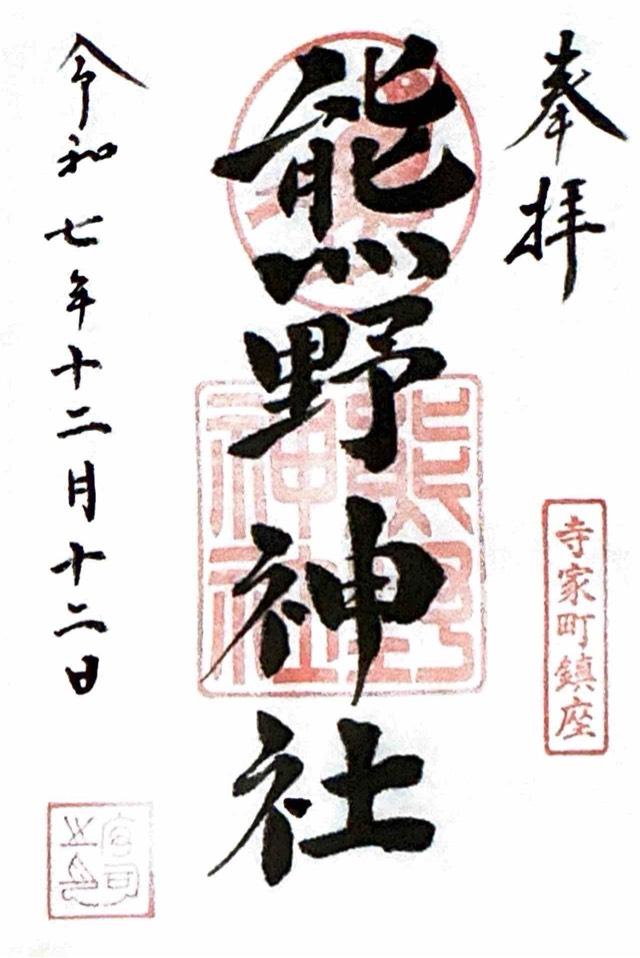 奉拝
寺家町鎮座
熊野神社
熊野神社
令和七年十二月十二日
宮司之印